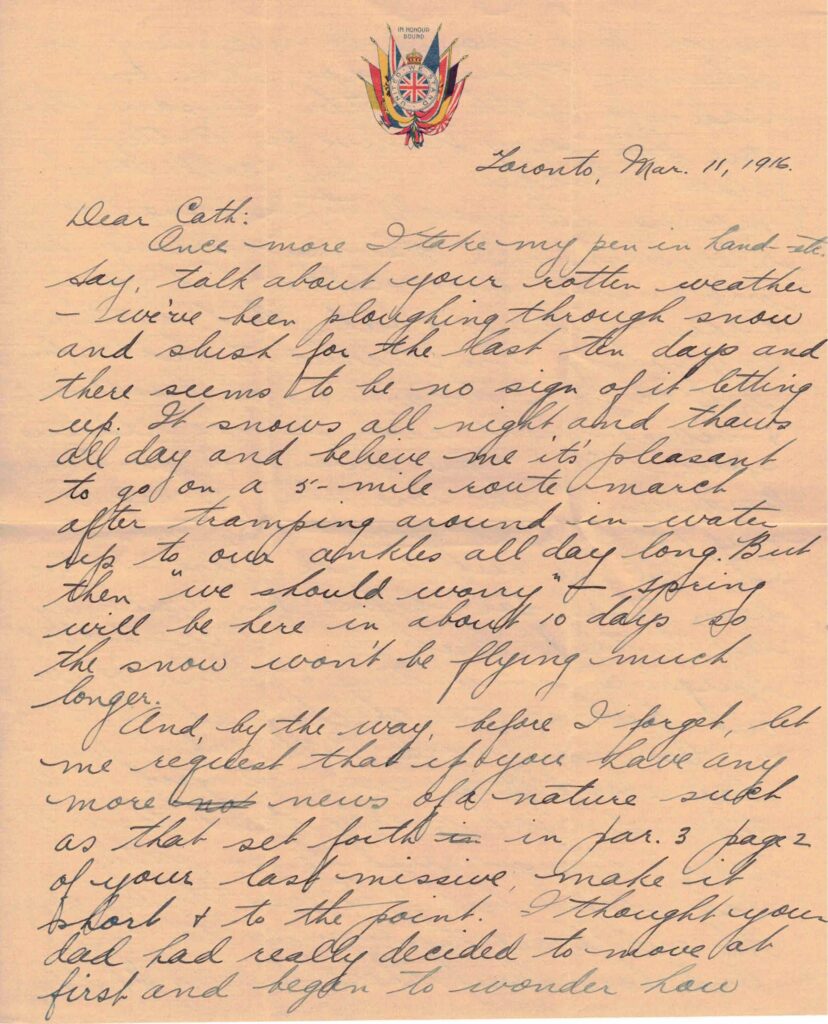 IN HONOUR
BOUND
UNITED WE STAND
Toronto, Mar. 11, 1916.
Dear Cath:
Once more I take my pen in hand - etc.
Say, talk about your rotten weather
- we've been ploughing through snow
and slush for the last ten days and
there seems to be no sign of it letting
up. It snows all night and thaws
all day and believe me it's pleasant
to go on a 5-mile route march
after tramping around in water
up to our ankles all day long. But
then "we should worry" - spring
will be here in about 10 days so
the snow won't be flying much
longer.
And, by the way, before I forget, let
me request that if you have any
more not news of a nature such
as that set forth in in par. 3 page 2
of your last missive, make it
short & to the point. I thought your
dad had really decided to move at
first and began to wonder how